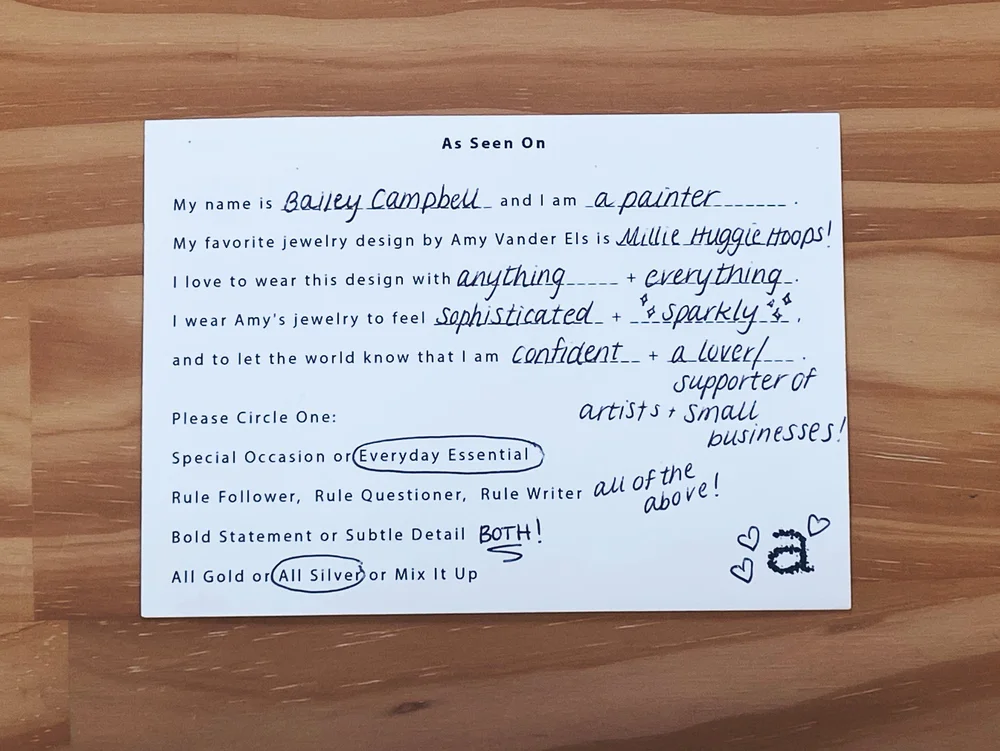 As Seen On
My name is Bailey Campbell and I am a painter.
My favorite jewelry design by Amy Vander Els is Millie Huggie Hoops!
I love to wear this design with anything + everything.
I wear Amy's jewelry to feel sophisticated + sparkly.
and to let the world know that I am confident + a lover/.
supporter of
artists + small
businesses!
Please Circle One:
Special Occasion or Everyday Essential
Rule Follower, Rule Questioner, Rule Writer all of the
above!
Bold Statement or Subtle Detail BOTH!
All Gold or All Silver or Mix It Up
a